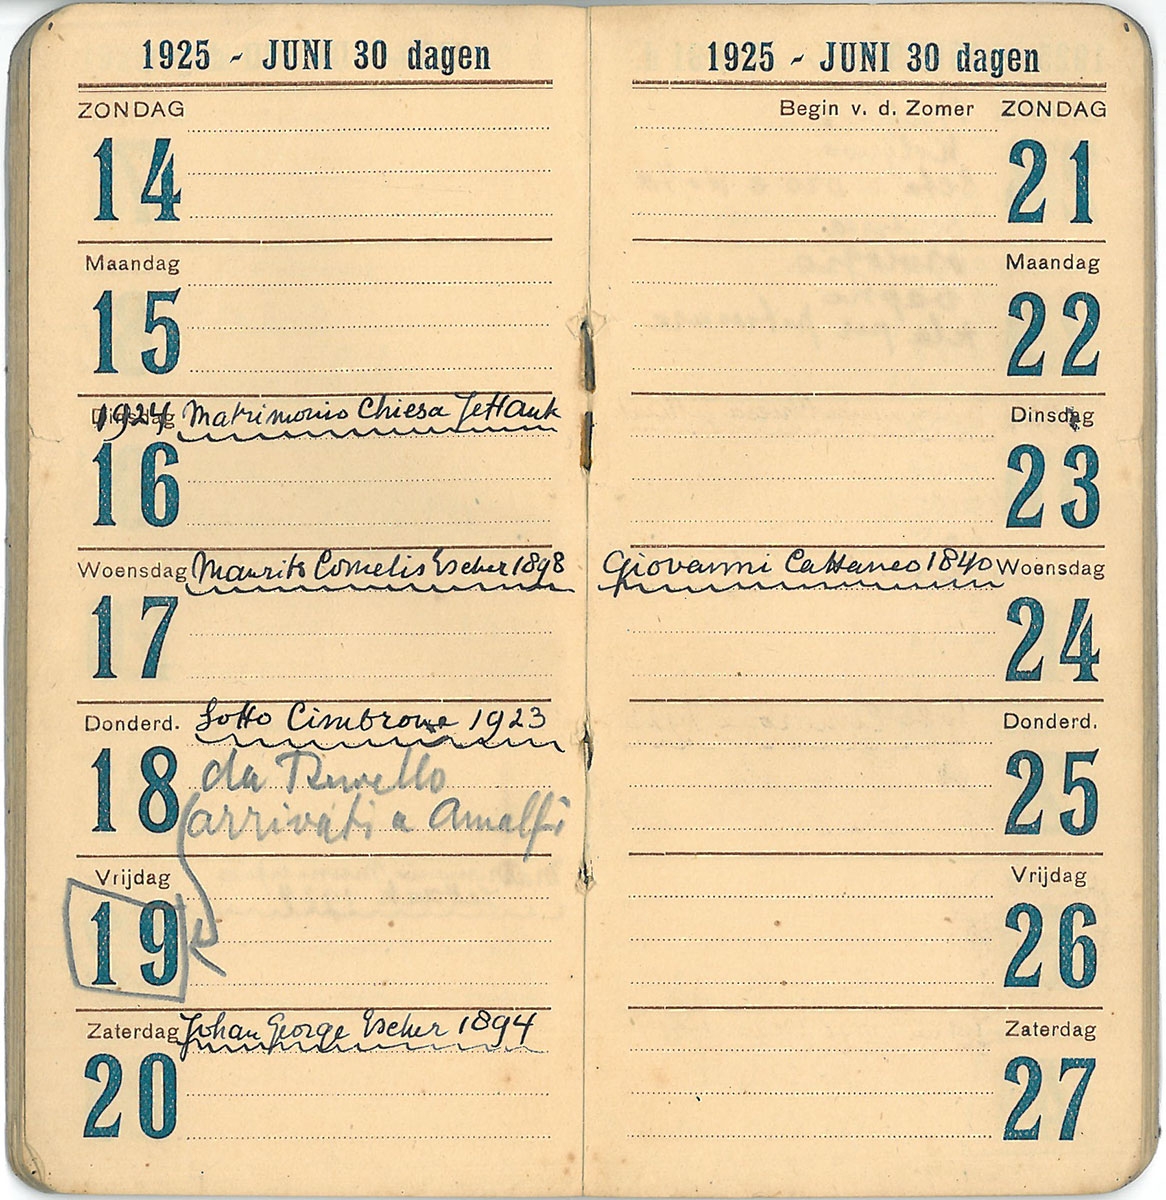 1925 - JUNI 30 dagen
ZONDAG
14
Maandag
15
Dinsdag 1924 Matrimonio Chiesa Jetta uk
16
Woensdag Maurits Cornelis Escher 1898
17
Donderd. Sotto Cimbrone 1923
18 da Ravello
arrivati a Amalfi
Vrijdag
19
Zaterdag Johan George Escher 1894
20
1925 - JUNI 30 dagen
Begin v. d. Zomer ZONDAG
21
Maandag
22
Dinsdag
23
Giovanni Cattaneo 1840 Woensdag
24
Donderd.
25
Vrijdag
26
Zaterdag
27